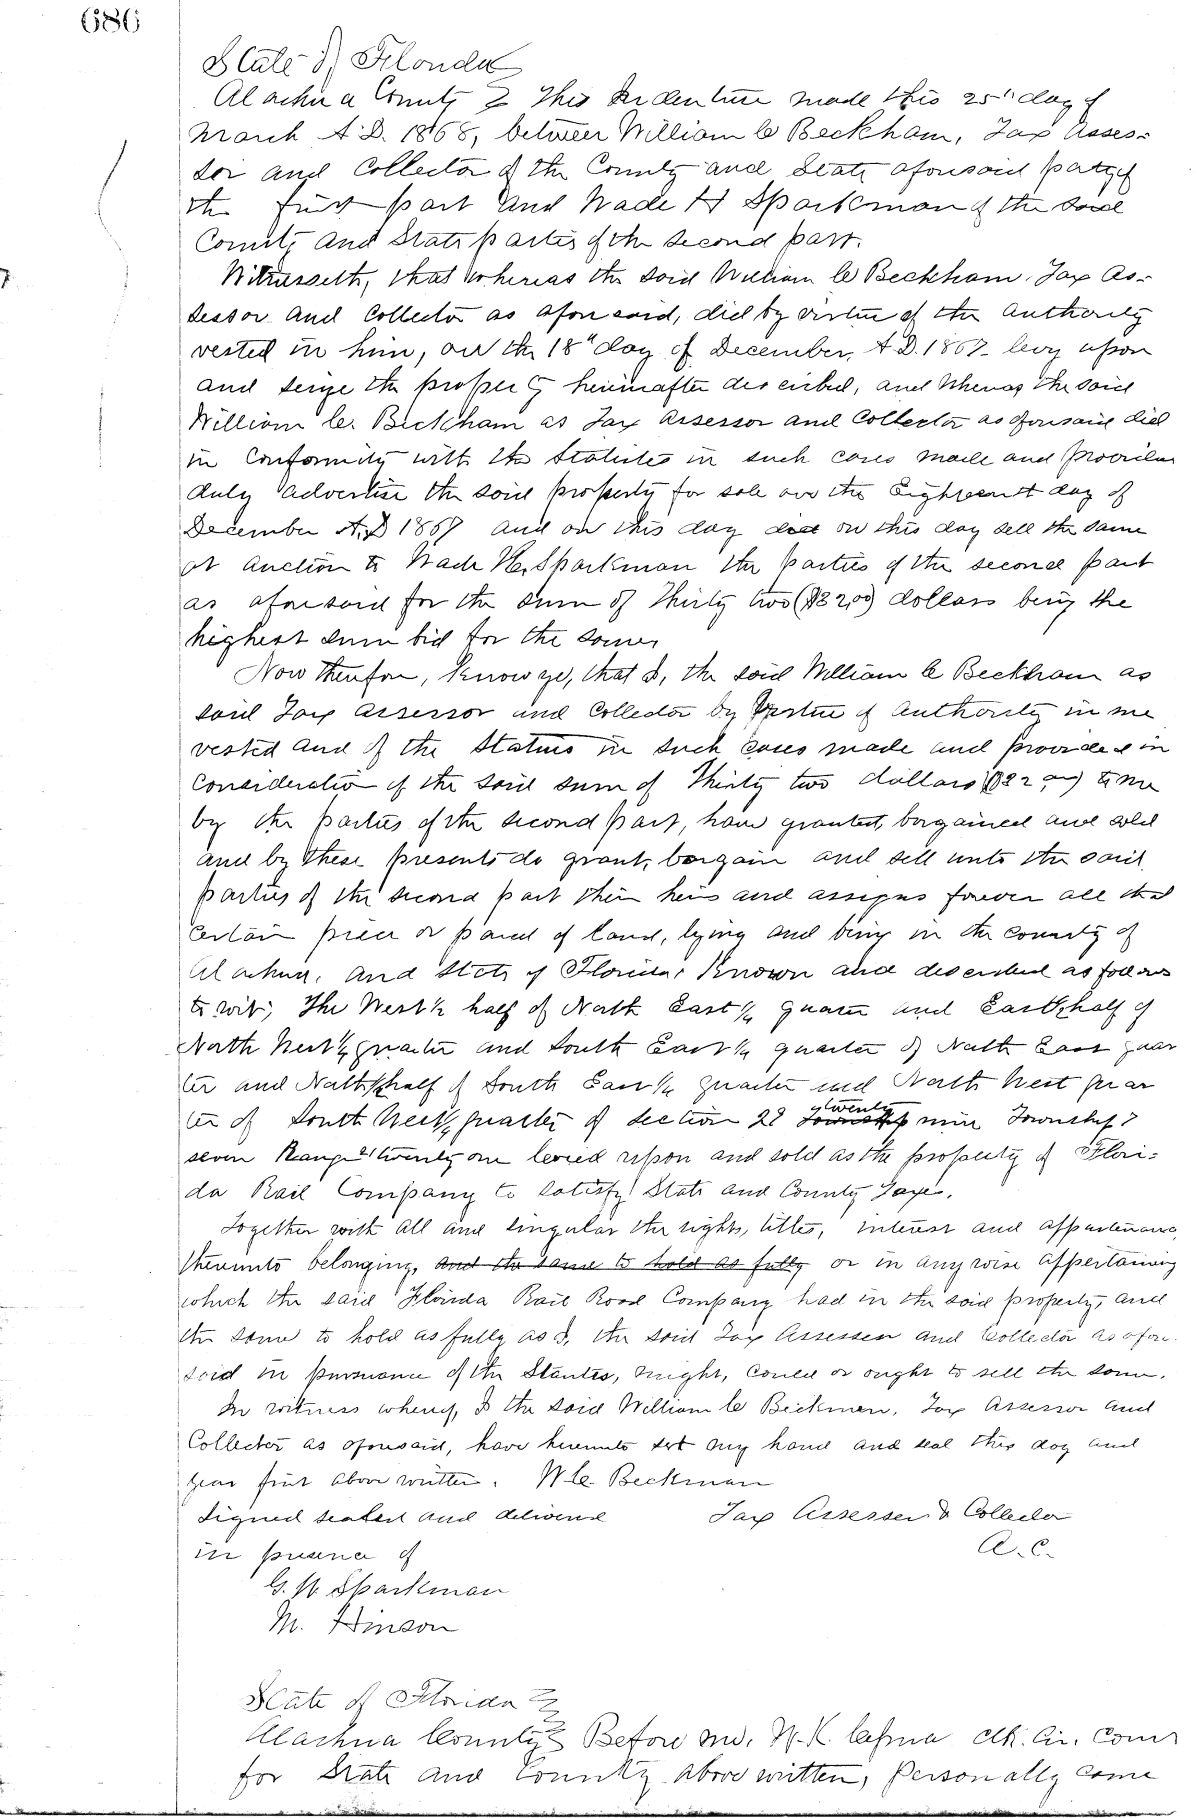 686
State of Florida
Alachua County This Indenture made this 25" day of
March A.D. 1868, between William C Beckham, Tax Asses-
sor and Collector of the County and State aforesaid party of
the first part and Wade H Sparkman of the said
County and State parties of the second part.
Witnesseth, that whereas the said William C Beckham, Tax As-
sessor and Collector as aforesaid, did by virtue of the authority
vested in him, on the 18" day of December, A.D. 1867 levy upon
and seize the property hereinafter described, and whereas the said
William C. Beckham as Tax Assessor and Collector as aforesaid did
in conformity with the Statutes in such cases made and provided
duly advertise the said property for sale on the Eighteenth day of
December A.D 1867 and on this day did on this day sell the same
at auction to Wade H. Sparkman the parties of the second part
as aforesaid for the sum of Thirty two ($32,00) dollars being the
highest sum bid for the same,
Now therefore, Know ye, that I, the said William C Beckham as
said Tax Assessor and Collector by Virtue of authority in me
vested and of the Statues in such cases made and provided in
consideration of the said sum of Thirty two dollars ($32,00) to me
by the parties of the second part, have granted, bargained and sold
and by these presents do grant, bargain and sell unto the said
parties of the second part their heirs and assigns forever all that
certain piece or parcel of land, lying and being in the county of
Alachua, and State of Florida, Known and described as follows
to wit; The West ½ half of North East ¼ quarter and East ½ half of
North West ¼ quarter and South East ¼ quarter of North East quar
ter and North ½ half of South East ¼ quarter and North West quar
ter of South West ¼ quarter of section 29 Township twenty nine Township 7
seven Range 21 twenty one levied upon and sold as the property of Flori-
da Rail Company to satisfy State and County Taxes.
Together with all and singular the rights, titles, interest and appurtenance,
thereunto belonging, and the same to hold as fully or in anywise appertaining
which the said Florida Rail Road Company had in the said property, and
the same to hold as fully as I, the said Tax Assessor and Collector as afore-
said in pursuance of the Stautes, might, could or ought to sell the same.
In witness whereof, I the said William C Beckman, Tax Assessor and
Collector as aforesaid, have hereunto set my hand and seal this day and
year first above written. W.C. Beckman
Signed sealed and delivered Tax Assesser & Collector
in presence of A. C.
G. W. Sparkman
M. Hinson
State of Florida
Alachua County Before me, W. K. Cessna Clk. Cir. Court
for State and County above written, Personally came